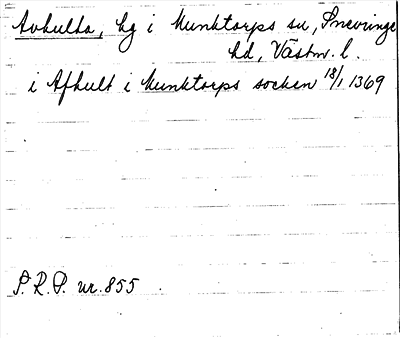 Avhulta, hg i Munktorps sn, Snevringe
hd, Västm. l.
i Afhult i Munktorps socken 18/1 1369
S.R.P. nr. 855